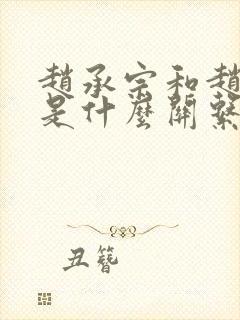 趙承宗和趙
是什麼關繫
丑簪